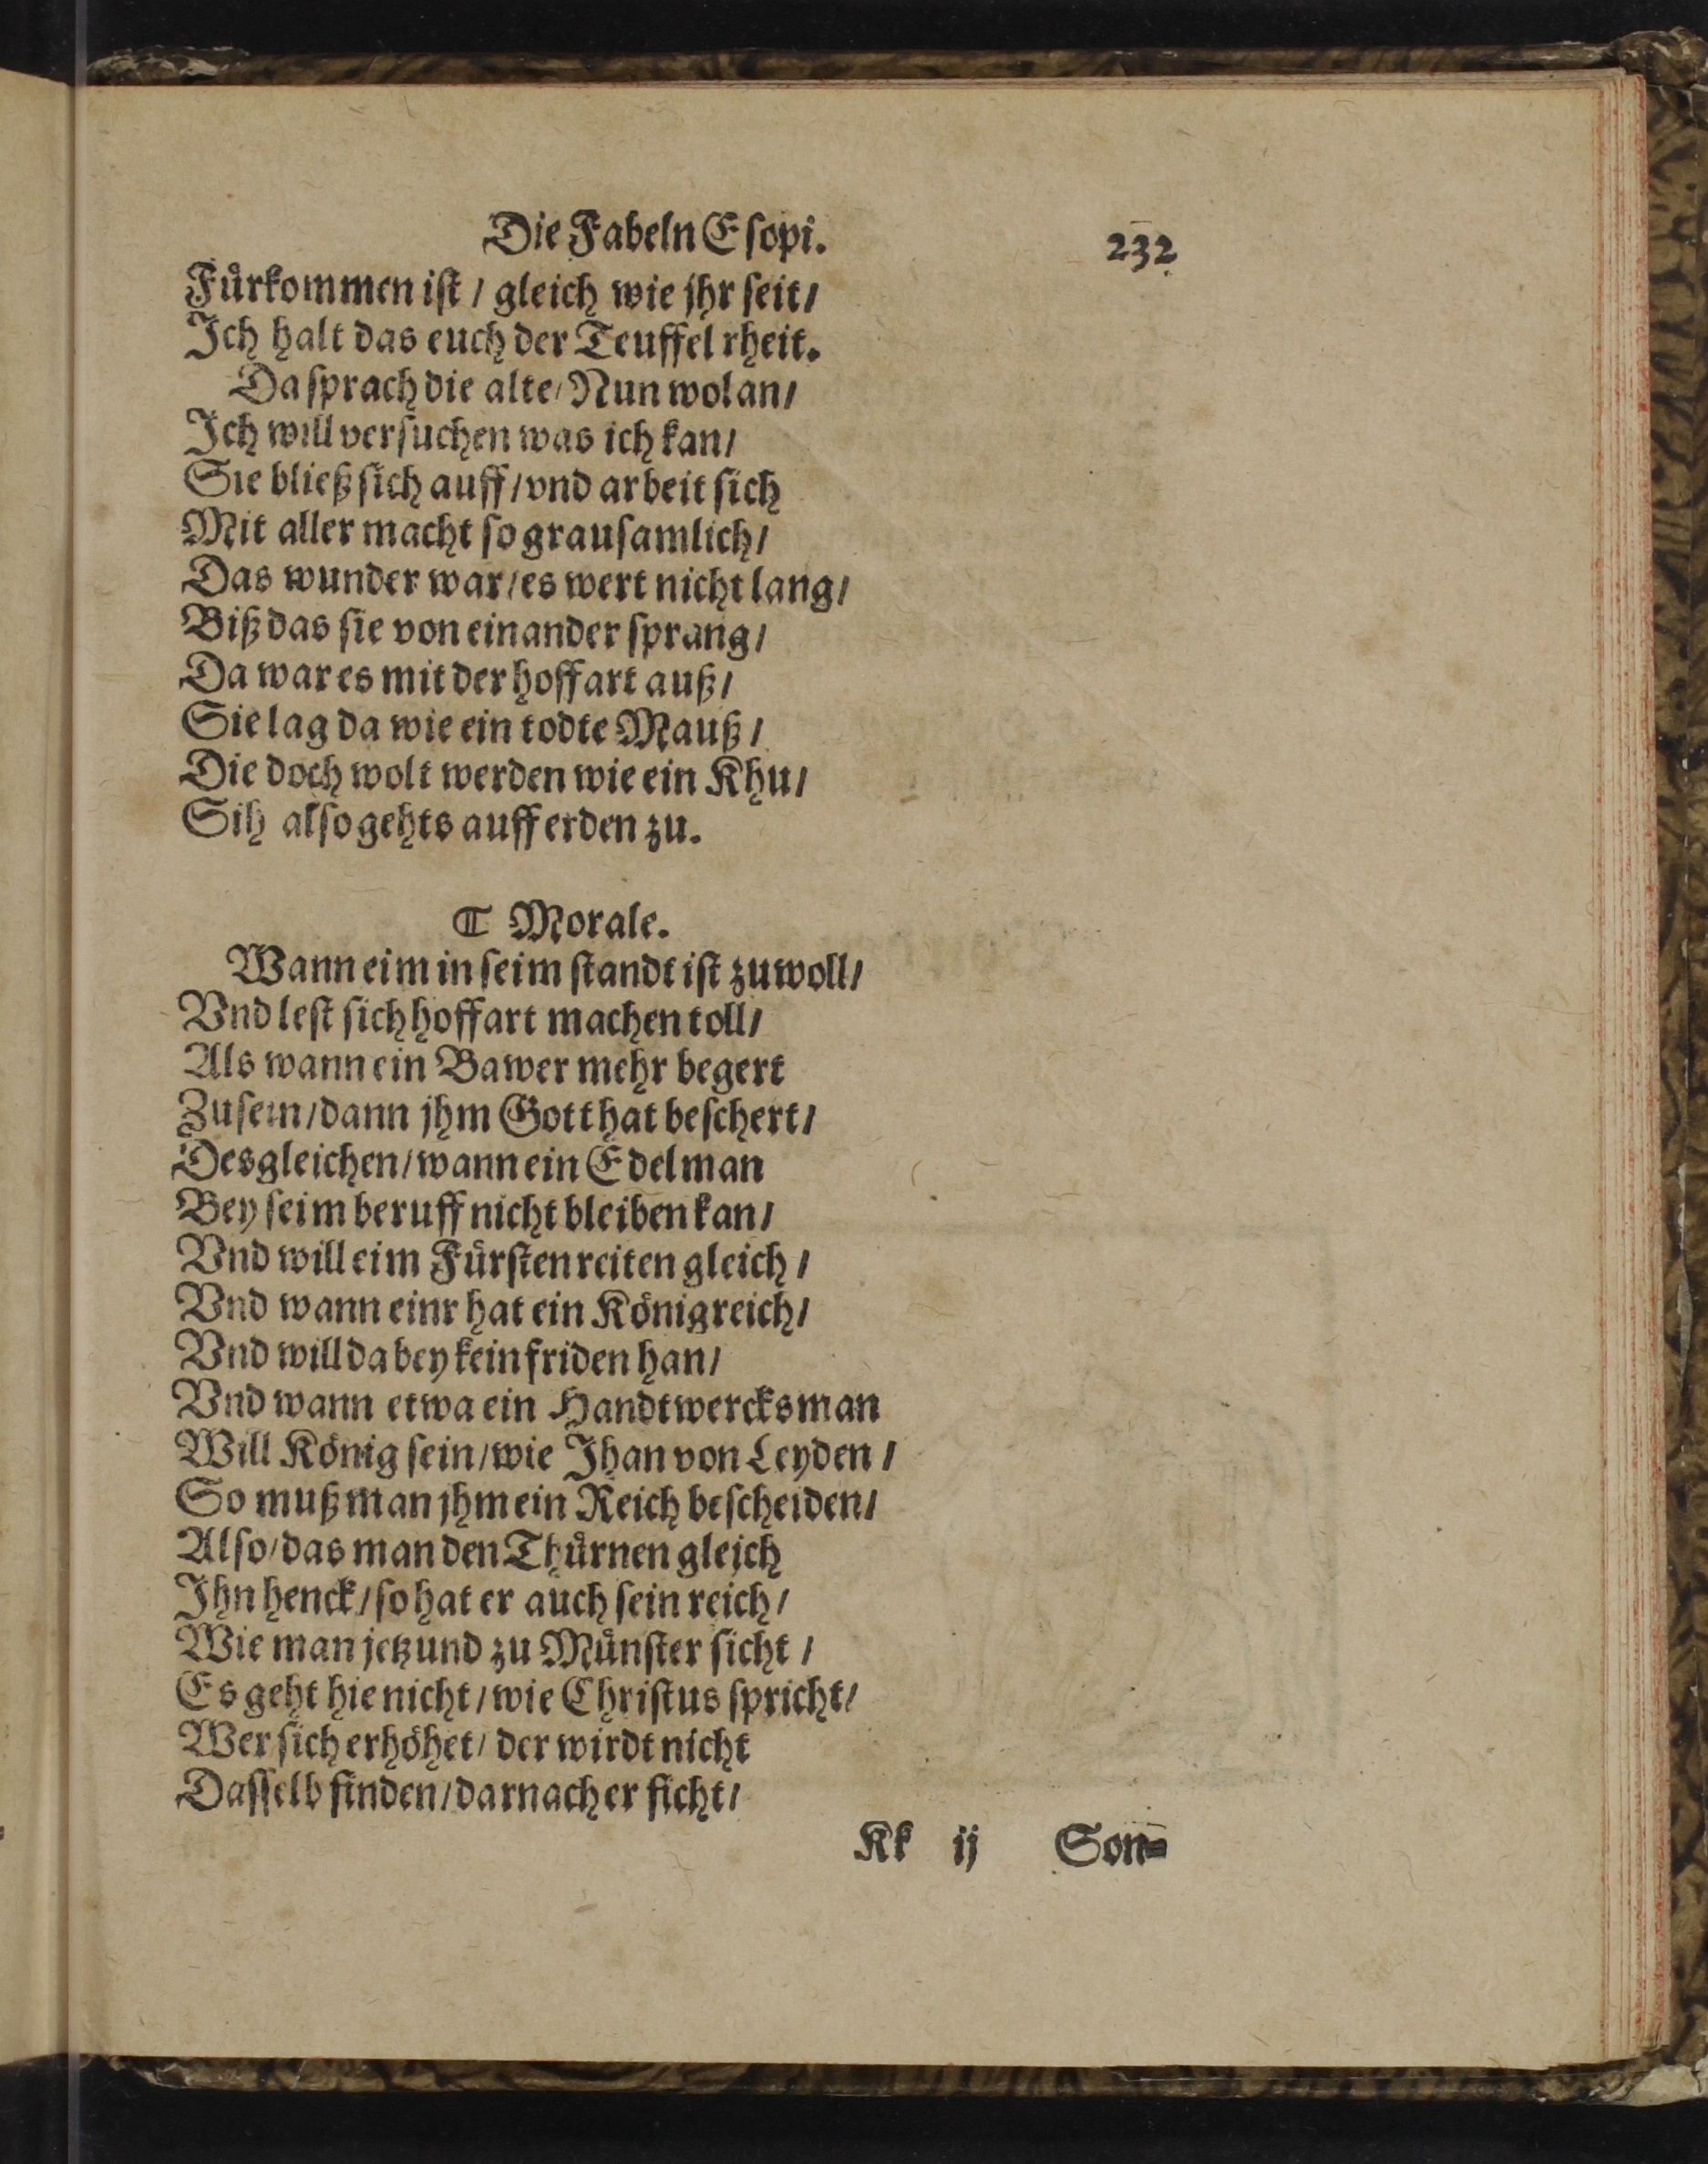 Die Fabeln Esopi. 232
Fuͤrkommen ist / gleich wie jhr seit /
Ich halt das euch der Teuffel rheit.
Da sprach die alte / Nun wolan /
Ich will versuchen was ich kan /
Sie bließ sich auff / vnd arbeit sich
Mit aller macht so grausamlich /
Das wunder war / es wert nicht lang /
Biß das sie von einander sprang /
Da war es mit der hoffart auß /
Sie lag da wie ein todte Mauß /
Die doch wolt werden wie ein Khu /
Sih also gehts auff erden zu.
⸿ Morale.
Wann eim in seim standt ist zu woll /
Vnd lest sich hoffart machen toll /
Als wann ein Bawer mehr begert
Zu sein / dann jhm Gott hat beschert /
Desgleichen / wann ein Edelman
Bey seim beruff nicht bleiben kan /
Vnd will eim Fuͤrsten reiten gleich /
Vnd wann einr hat ein Koͤnigreich /
Vnd will da bey kein friden han /
Vnd wann etwa ein Handtwercksman
Will Koͤnig sein / wie Jhan von Leyden /
So muß man jhm ein Reich bescheiden /
Also / das man den Thuͤrnen gleich
Ihn henck / so hat er auch sein reich /
Wie man jetzund zu Muͤnster sicht /
Es geht hie nicht / wie Christus spricht /
Wer sich erhoͤhet / der wirdt nicht
Dasselb finden / darnach er ficht /
Kk ij Son⸗